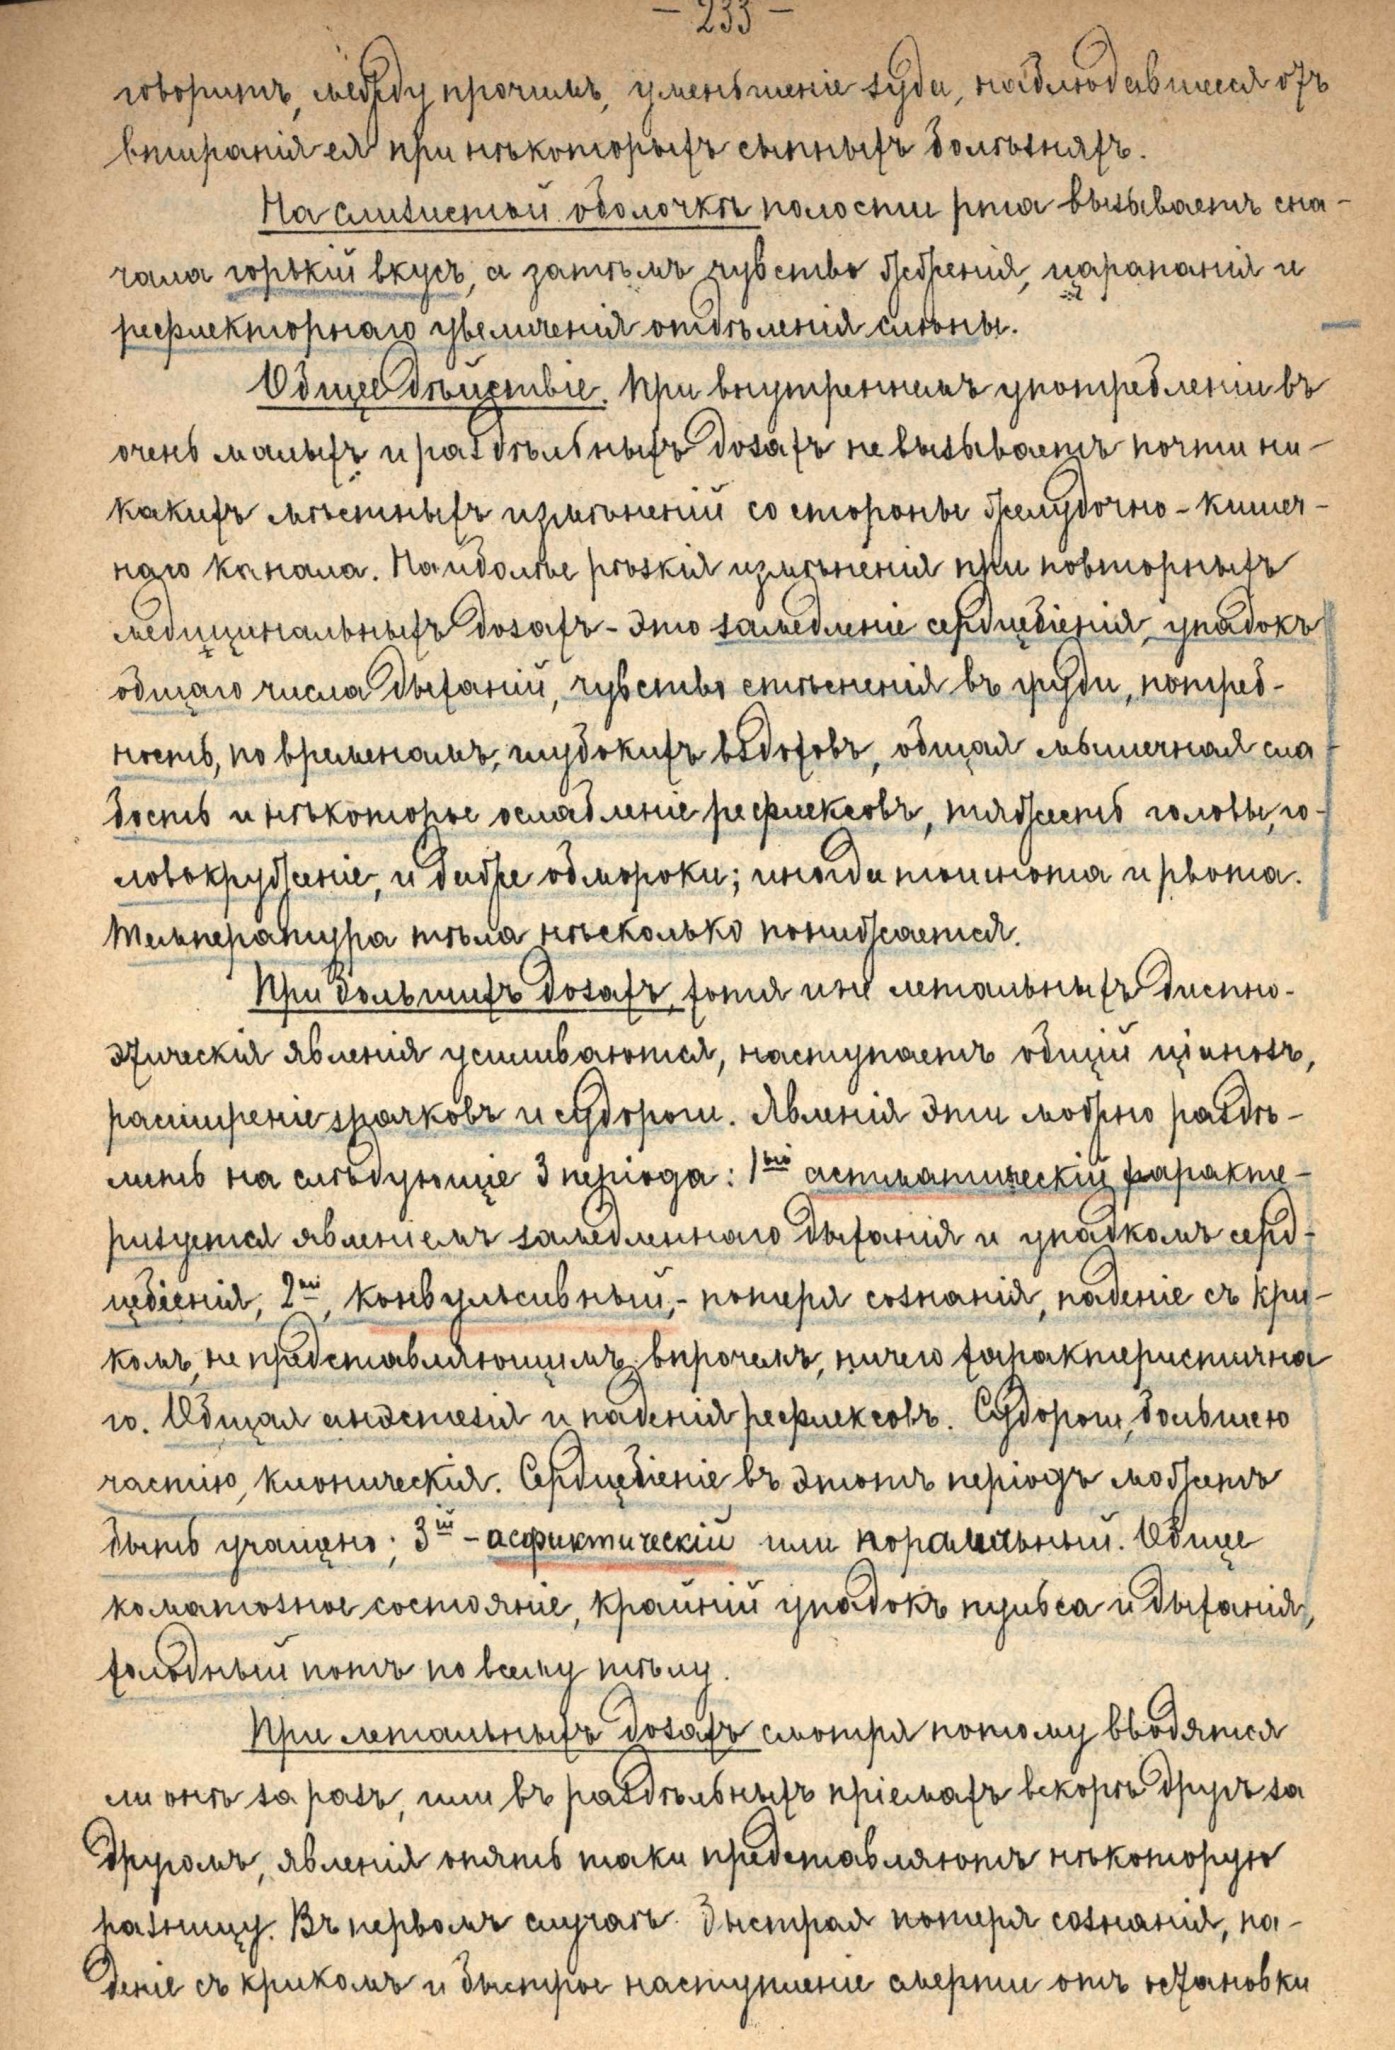 — 233 —
говоритъ, между прочимъ, уменьшеніе зуда, наблюдавшееся отъ
втиранія ея при нѣкоторыхъ сыпныхъ болѣзняхъ.
На слизистой оболочкѣ полости рта вызываетъ сна-
чала горькій вкусъ, а затѣмъ чувство жженія, царапанія и
рефлекторнаго увеличенія отдѣленія слюны.
Общее дѣйствіе. При внутреннемъ употребленіи въ
очень малыхъ и раздѣльныхъ дозахъ не вызываетъ почти ни-
какихъ мѣстныхъ измѣненій со стороны желудочно-кишеч-
наго канала. Наиболѣе рѣзкія измѣненія при повторныхъ
медицинальныхъ дозахъ - это замедленіе сердцебіенія, упадокъ
общаго числа дыханій, чувство стѣсненія въ груди, потреб-
ность, по временамъ, глубокихъ вздоховъ, общая мышечная сла-
бость и нѣкоторое ослабленіе рефлексовъ, тяжесть головы, го-
ловокруженіе, и даже обмороки; иногда тошнота и рвота.
Температура тѣла нѣсколько понижается.
При большихъ дозахъ, хотя и не летальныхъ диспно-
этическія явленія усиливаются, наступаетъ общій ціанозъ,
расширеніе зрачковъ и судороги. Явленія эти можно раздѣ-
лить на слѣдующіе 3 періода: 1ый астматическій характе-
ризуется явленіемъ замедленнаго дыханія и упадкомъ серд-
цебіенія, 2ой, конвульсивный, - потеря сознанія, паденіе съ кри-
комъ, не представляющимъ, впрочемъ, ничего характеристична
го. Общая анэстезія и паденія рефлексовъ. Судороги, большею
частію, клоническія. Сердцебіеніе въ этотъ періодъ можетъ
быть учащено; 3ій - асфиктическій или паралельный. Общее
коматозное состояніе, крайній упадокъ пульса и дыханія,
холодный потъ по всему тѣлу.
При летальныхъ дозахъ смотря потому вводятся
ли онѣ за разъ, или въ раздѣльныхъ пріемахъ вскорѣ другъ за
другомъ, явленія опять таки представляютъ нѣкоторую
разницу. Въ первомъ случаѣ быстрая потеря сознанія, па-
деніе съ крикомъ и быстрое наступленіе смерти отъ остановки